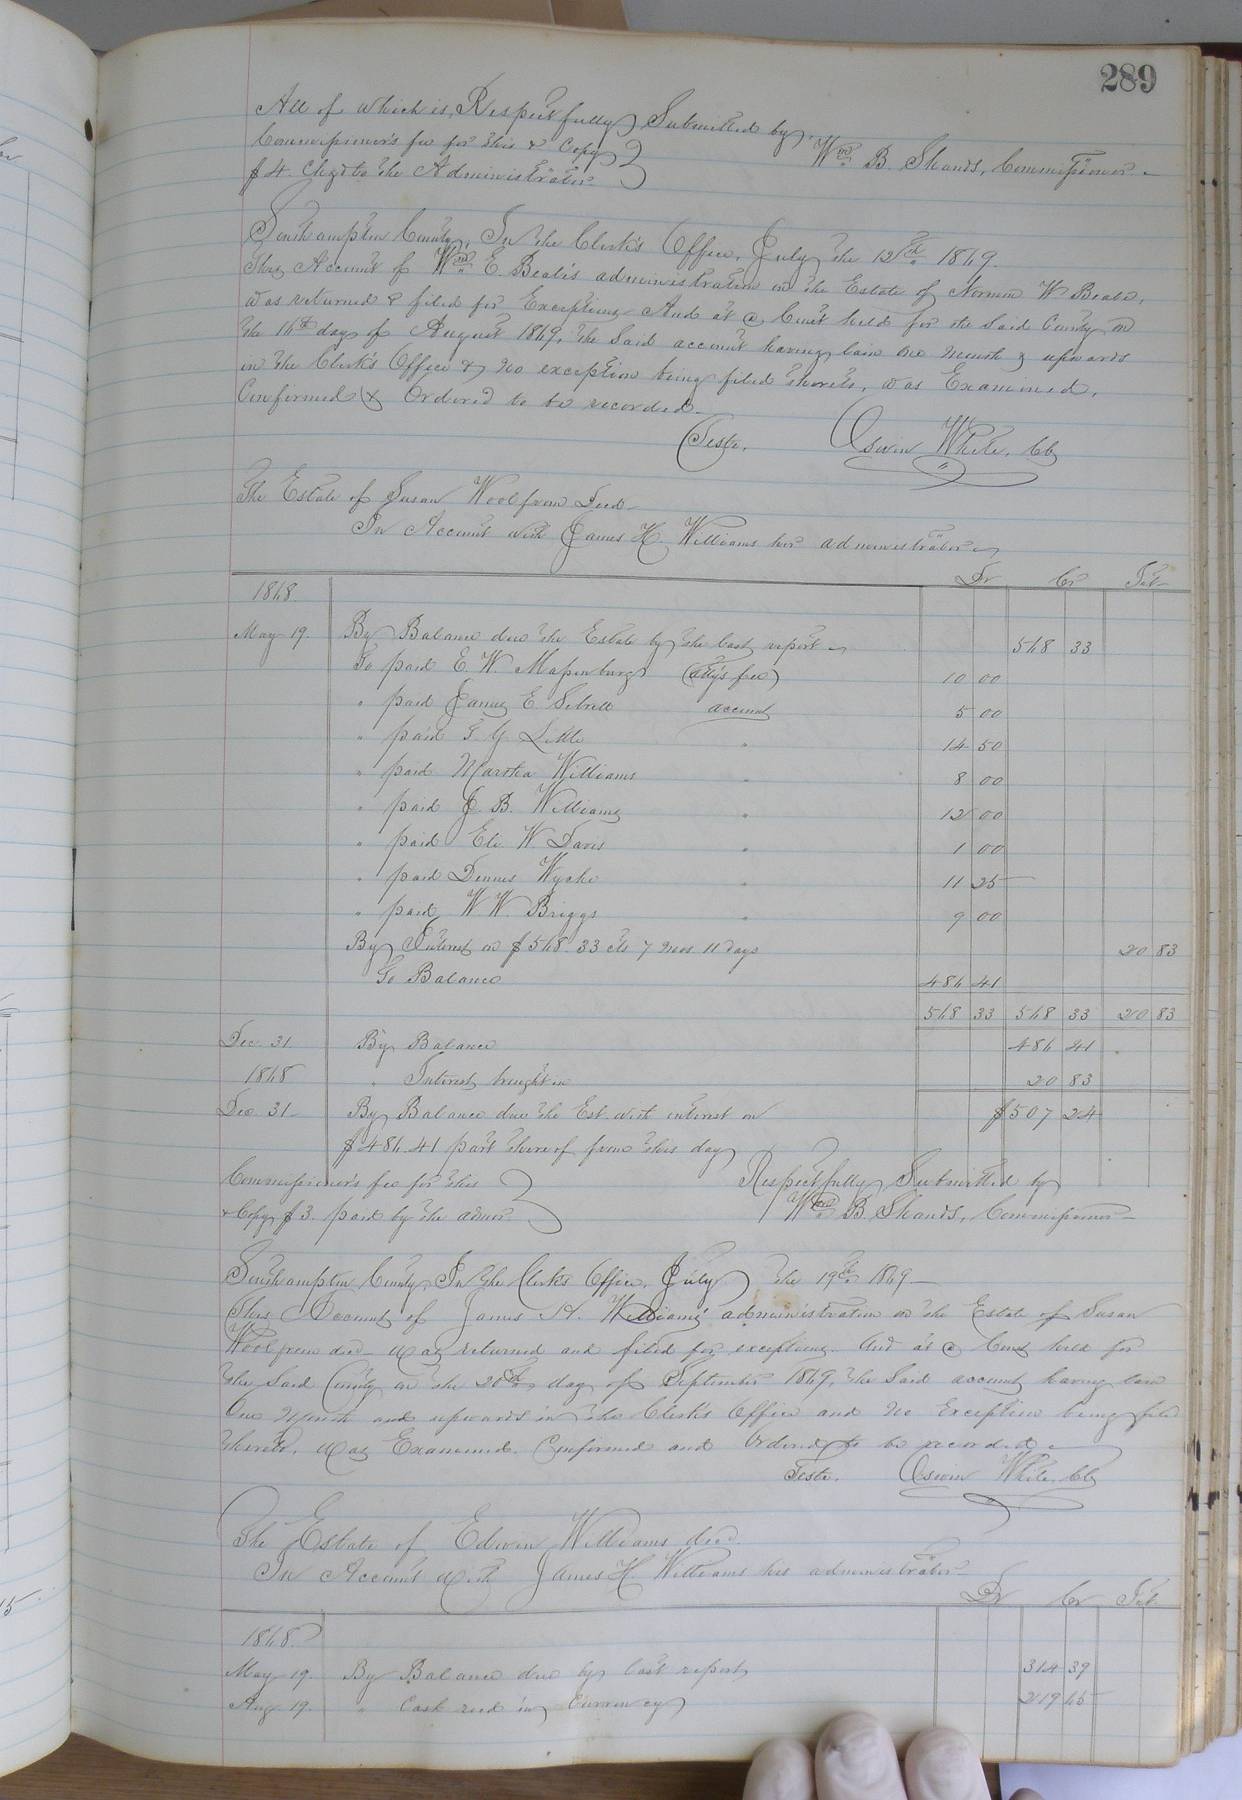 289
All of which is Respectfully Submitted by
Commissioner's fee for this & Copy
$4. Chgd to the Administrator
Wm B. Shands, Commissioner
Southampton County, In the Clerk's Office, July the 12th 1869.
This Account of Wm E. Beale's administration on the Estate of Norman W Beale,
was returned & filed for Exceptions And at a Court held for the said County on
the 16th day of August 1869, the said account having lain one month & upwards
in the Clerk's Office & no exception being filed thereto, was Examined,
Confirmed & Ordered to be recorded.
Teste, Oswin White, Clk
The Estate of Susan Woolfrom Decd
In Account with James H. Williams her administrator
Dr Cr Int
1868
May 19. By Balance due the Estate by the last report 568 33
To paid E. W. Massenburg (atty's fee) 10 00
" paid James E Sebrell account 5 00
" paid G Y Little " 14 50
" paid Martha Williams " 8 00
" paid J. B. Williams " 12 00
" paid Eli W Davis " 1 00
" paid Dennis Wyche " 11 25
" paid W W. Briggs " 9 00
By Interest on $568.33 cts 7 mos. 11 days 20 83
To Balance 486 41
568 33 568 33 20 83
Dec. 31 By Balance 486 41
1868 " Interest brought in 20 83
Dec. 31 By Balance due the Est. with interest on $507 24
$486.41 part thereof from this day
Commissioner's fee for this
& Copy $3. paid by the admor.
Respectfully Submitted by
Wm B. Shands, Commissioner
Southampton County, In the Clerk's Office, July the 19th 1869
This Account of James H. Williams' administration on the Estate of Susan
Woolfrom decd was returned and filed for exceptions. And at a Court held for
the said County on the 20th day of September 1869, the said account having lain
One Month and upwards in the Clerk's Office and no Exception being filed
thereto, was Examined. Confirmed and Ordered to be recorded.
Teste. Oswin White, Clk
The Estate of Edwin Williams decd.
In Account with James H. Williams his administrator
Dr Cr Int.
1868.
May 19. By Balance due by last report 314 39
Aug 19. " Cash recd in Currency 219 65